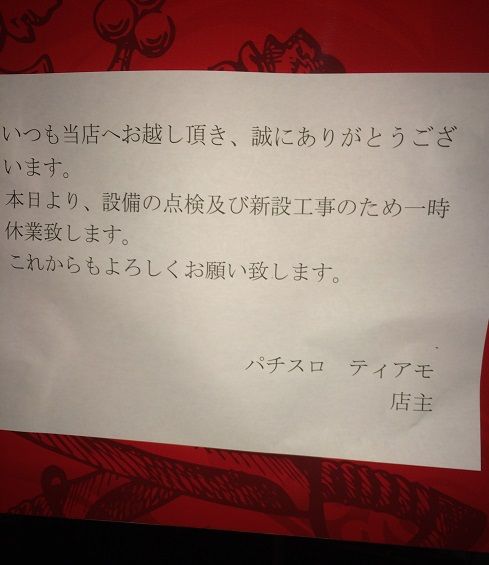 いつも当店へお越し頂き、誠にありがとうござ
います。
本日より、設備の点検及び新設工事のため一時
休業致します。
これからもよろしくお願い致します。
パチスロ　ティアモ
店主